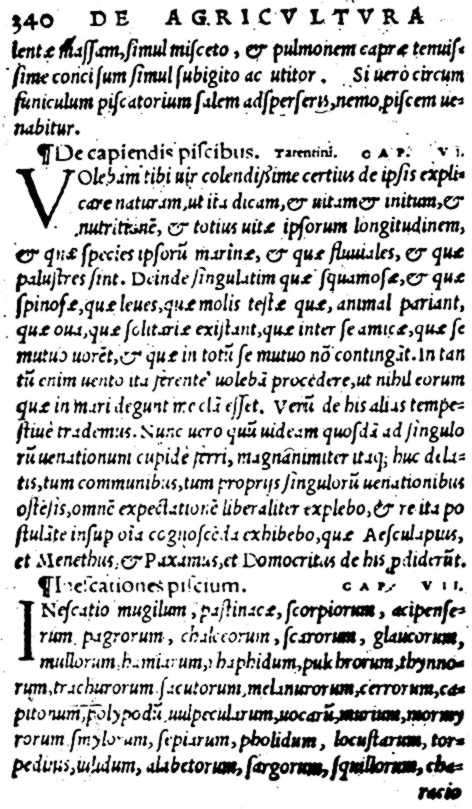 340 DE AGRICVLTVRA
lentæ Massam, simul misceto, & pulmonem capræ tenuis-
sime concisum simul subigito ac utitor. Si uerò circum
funiculum piscatorium salem adsperseris, nemo piscem ue-
nabitur.
¶De capiendis piscibus. Tarentini. CAP. VI.
VOlebam tibi uir colendissime certius de ipsis expli-
care naturam, ut ita dicam, & uitam & initum, &
nutritionē, & totius uitæ ipsorum longitudinem,
& quæ species ipsorū marinæ, & quæ fluuiales, & quæ
palustres sint. Deinde singulatim quæ squamosæ, & quæ
spinosæ, quæ leues, quæ molis testæ quæ, animal pariant,
quæ oua, quæ solitariæ existant, quæ inter se amicæ, quæ se
mutuo uorēt, & quæ in totū se mutuo nō contingāt. In tan
tū enim uento ita ferente uolebā procedere, ut nihil eorum
quæ in mari degunt me clā esset. Verū de his alias tempe-
stiuè trademus. Nunc uero quū uideam quosdā ad singulo
rū uenationum cupidè ferri, magnanimiter itaq; huc dela-
tis, tum communibus, tum proprijs singulorū uenationibus
ostēsis, omnē expectationē liberaliter explebo, & re ita po
stulāte insup oīa cognoscēda exhibebo, quæ Aesculapius,
et Menethus, & Paxamus, et Domocritus de his pdiderūt.
¶Inescationes piscium. CAP. VII.
INescatio mugilum, pastinacæ, scorpiorum, acipense-
rum pagrorum, chalceorum, scarorum, glaucorum,
mullorum, hamiarum, rhaphidum, pulchrorum, thynno-
rum, trachurorum sacutorum, melanurorum, cerrorum, ca-
pitonum, polypodū, uulpecularum, uocarū, murium, mormy
rorum smylorum, sepiarum, pholidum, locustarum, tor-
pedinis, iulidum, alabetorum, sargorum, squillorum, cha-
racio